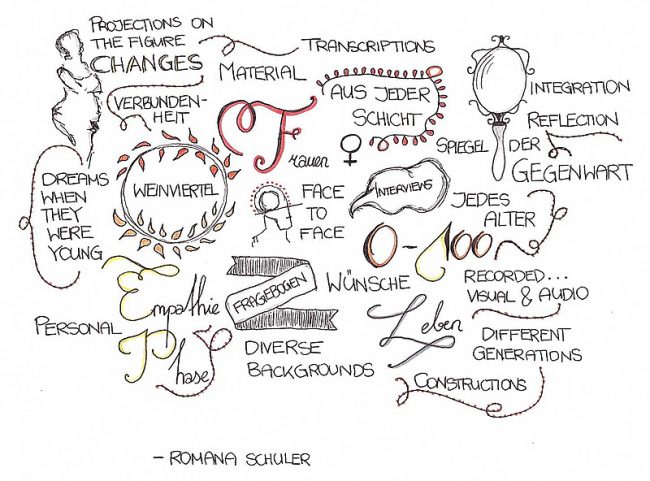 PROJECTIONS ON
THE FIGURE
CHANGES
TRANSCRIPTIONS
MATERIAL
VERBUNDEN-
HEIT
AUS JEDER
SCHICHT
Frauen
INTEGRATION
REFLECTION
SPIEGEL DER
GEGENWART
DREAMS
WHEN
THEY
WERE
YOUNG
WEINVIERTEL
FACE
TO
FACE
INTERVIEWS
JEDES
ALTER
0-100
Empathie
Phase
PERSONAL
FRAGEBOGEN
WÜNSCHE
RECORDED...
VISUAL & AUDIO
Leben
DIVERSE
BACKGROUNDS
DIFFERENT
GENERATIONS
CONSTRUCTIONS
- ROMANA SCHULER